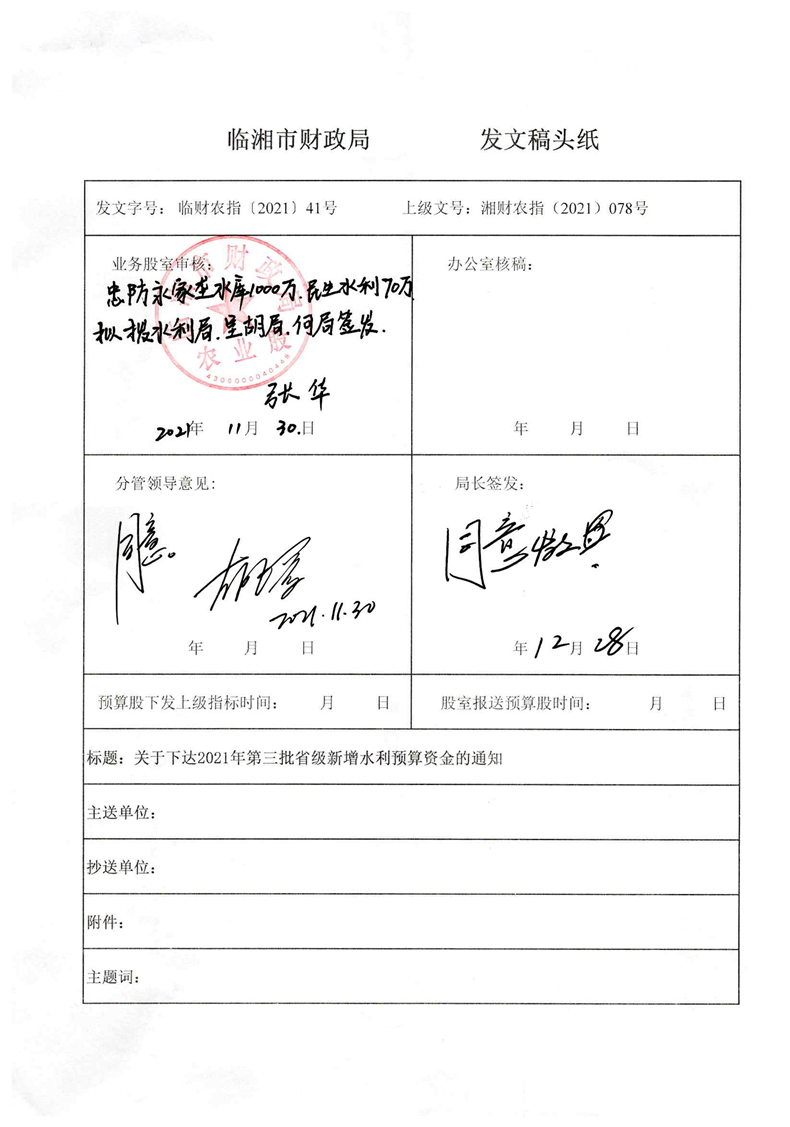 临湘市财政局 发文稿头纸
发文字号： 临财农指〔2021〕41号 上级文号：湘财农指（2021）078号
业务股室审核：
忠防永家垄水库1000万.民生水利70万
拟拨水利局.呈胡局.何局签发.
张华
2021年 11月 30.日
财政局
农业股
4306000040448
办公室核稿：
年 月 日
分管领导意见：
同意。
2021.11.30
年 月 日
局长签发：
同意
年 12月 28日
预算股下发上级指标时间： 月 日
股室报送预算股时间： 月 日
标题：关于下达2021年第三批省级新增水利预算资金的通知
主送单位：
抄送单位：
附件：
主题词：